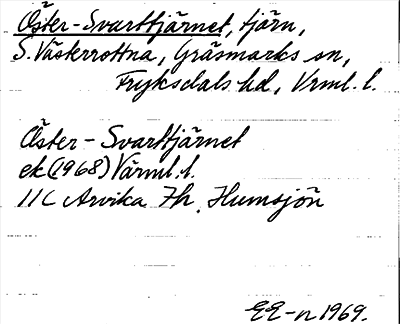 Öster-Svarttjärnet, tjärn,
S. Västerrottna, Gräsmarks sn,
Fryksdals hd, Vrml. l.
Öster-Svarttjärnet
ek (1968) Värml. l.
11C Arvika 7h, Humsjön
EE-n 1969.